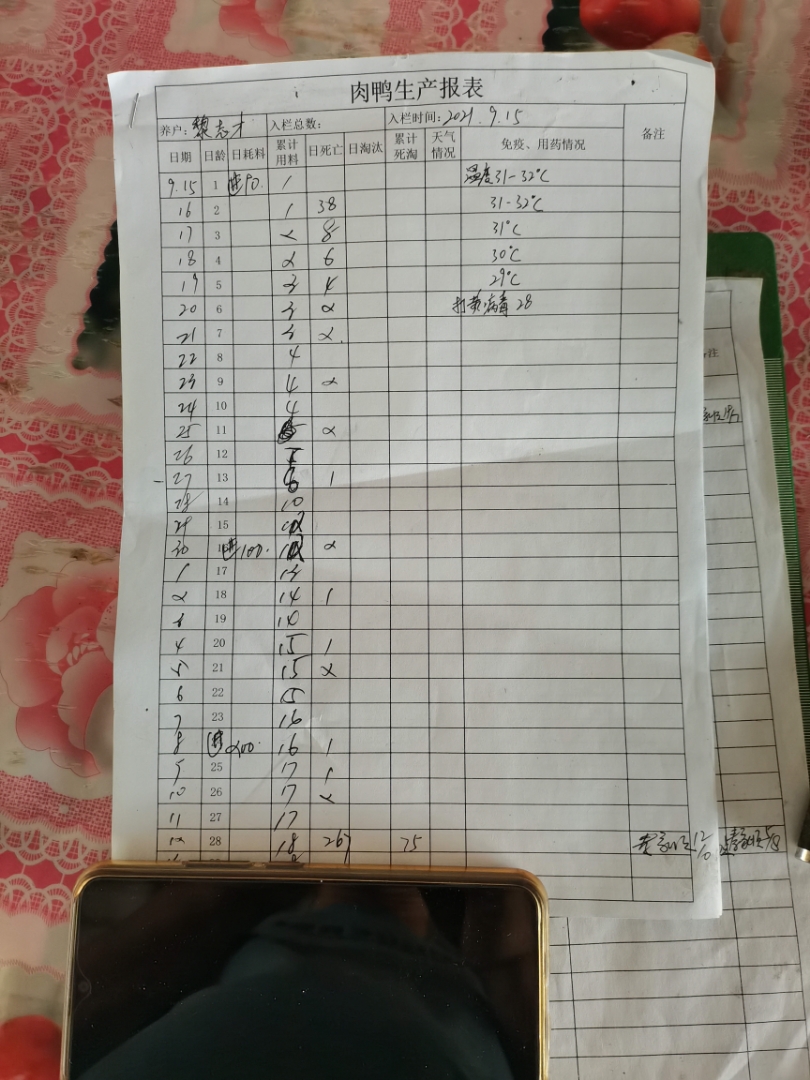 肉鸭生产报表
养户: 黎志才 入栏总数: 入栏时间: 2021.9.15
日期 日龄 日耗料 累计用料 日死亡 日淘汰 累计死淘 天气情况 免疫、用药情况 备注
9.15 1 进90. 1 温度31-32℃
16 2 1 38 31-32℃
17 3 2 8 31℃
18 4 2 6 30℃
19 5 3 4 29℃
20 6 3 2 打 病毒 28
21 7 3 2.
22 8 4
23 9 4 2
24 10 4
25 11 2
26 12
27 13 6 1
28 14 10
29 15
30 进100. 2
1 17 13
2 18 14 1
3 19 10
4 20 15 1
5 21 15 2
6 22 15
7 23 16
8 进200. 16 1
9 25 17 1
10 26 17 2
11 27 17
12 28 18 267 75
注